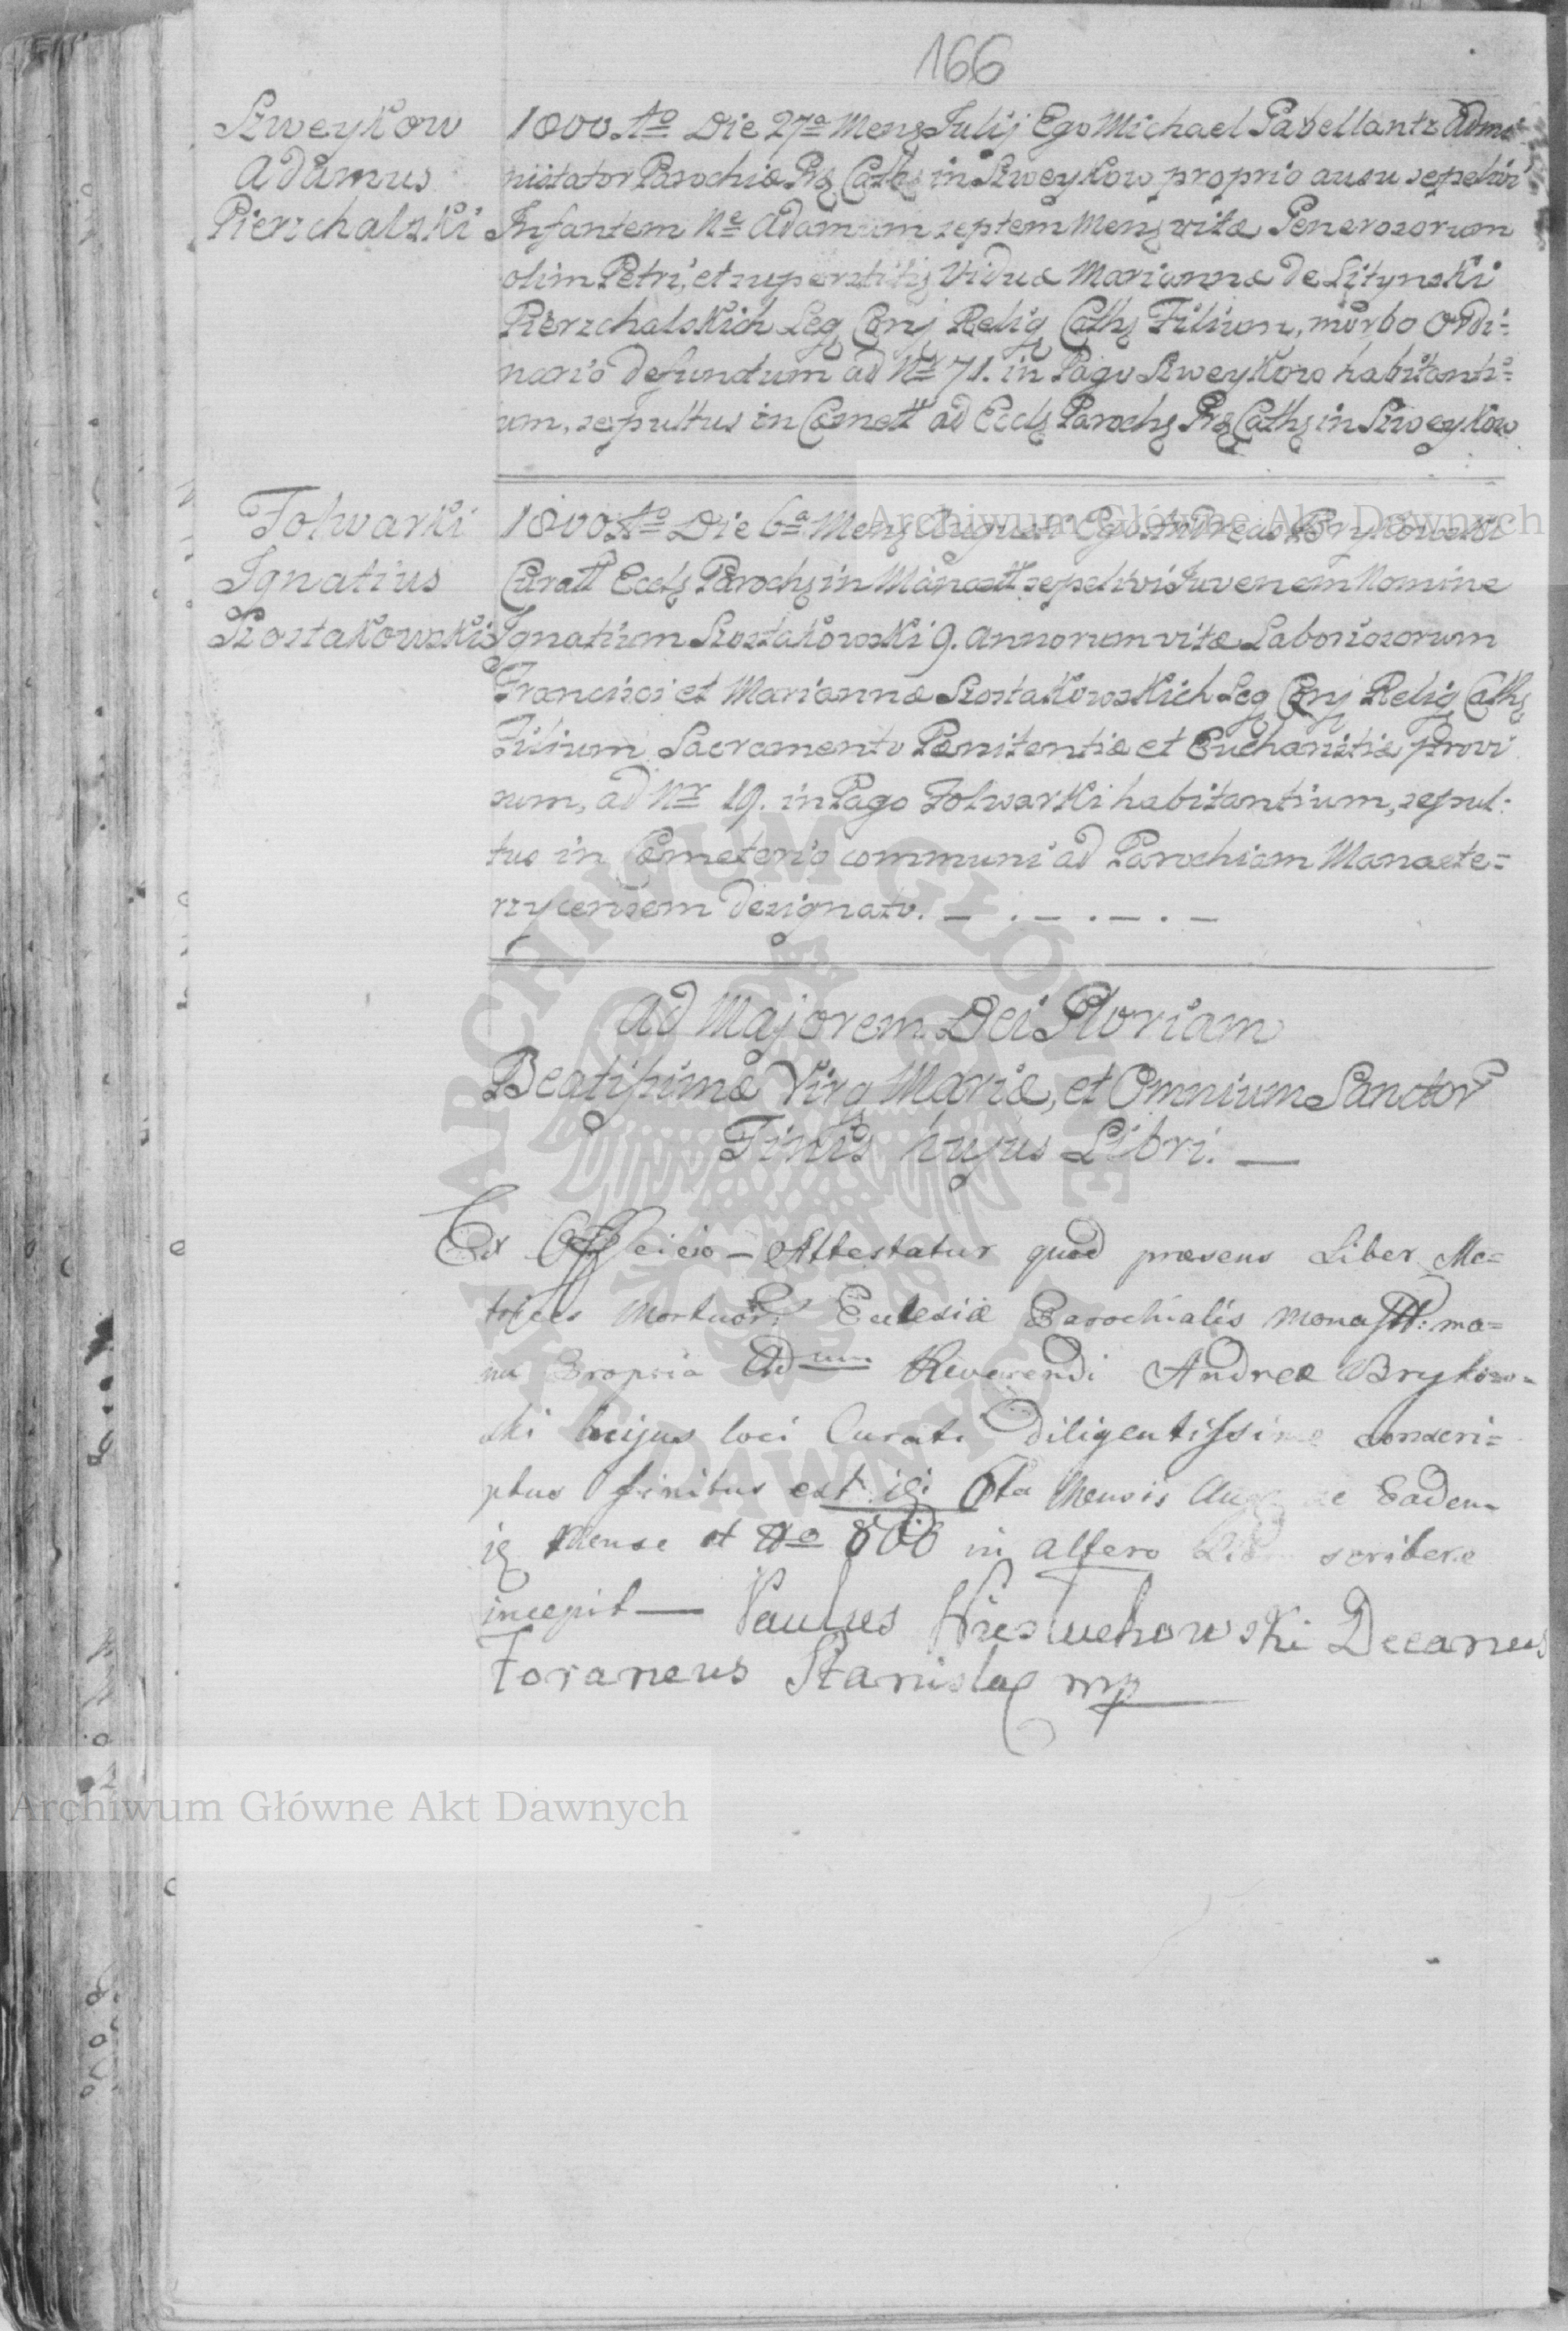 166
Szweykow
Adamus
Pierzchalski
1800 Ao Die 27a Mens Julij Ego Michael Gabellantz Admi-
nistrator Parochiæ Rs Caths in Szweykow proprio ausu sepelivi
Infantem Ne Adamum septem Mens vitæ Generosorum
olim Petri, et superstitis Viduæ Mariannæ de Lityński
Pierzchalskich Leg Conj Relig Caths Filium, morbo Ordi=
nario defunctum ad Nr 71. in Pago Szweykow habitanti=
um, sepultus in Cœmett ad Eccls Parochs Rs Caths in Szweykow
Folwarki
Ignatius
Szostakowski
1800 Ao Die 6a Mens Augusti Ego Andreas Brykowski
Curatt Eccls Parochs in Manastt sepelivi Juvenem Nomine
Ignatium Szostakowski 9. annorum vitæ Laboriosorum
Francisci et Mariannæ Szostakowskich Leg Conj Relig Caths
Filium Sacramento Pœnitentiæ et Eucharistiæ provi
sum, ad Nr 19. in Pago Folwarki habitantium, sepul:
tus in Cœmeterio communi ad Parochiam Manaste=
rzycensem designato. — . — . — . —
Ad Majorem Dei Gloriam
Beatissimæ Virg Mariæ, et Omnium Sanctor
Finis hujus Libri. —
Ex Officio — Attestatur quod præsens Liber Me=
trices Mortuor: Eclesiæ Parochialis Monastt: ma=
nu Propria Adum Reverendi Andreæ Brykow=
ski hujus loci Curati diligentissime conscri=
ptus finitus est 6ta Mensis Eadem
Mense et Ao 800 in altero scribere
incepit — Paulus Decaneus
Foraneus Stanisla mp
Archiwum Główne Akt Dawnych
Archiwum Główne Akt Dawnych
ARCHIWUM GŁÓWNE AKT DAWNYCH